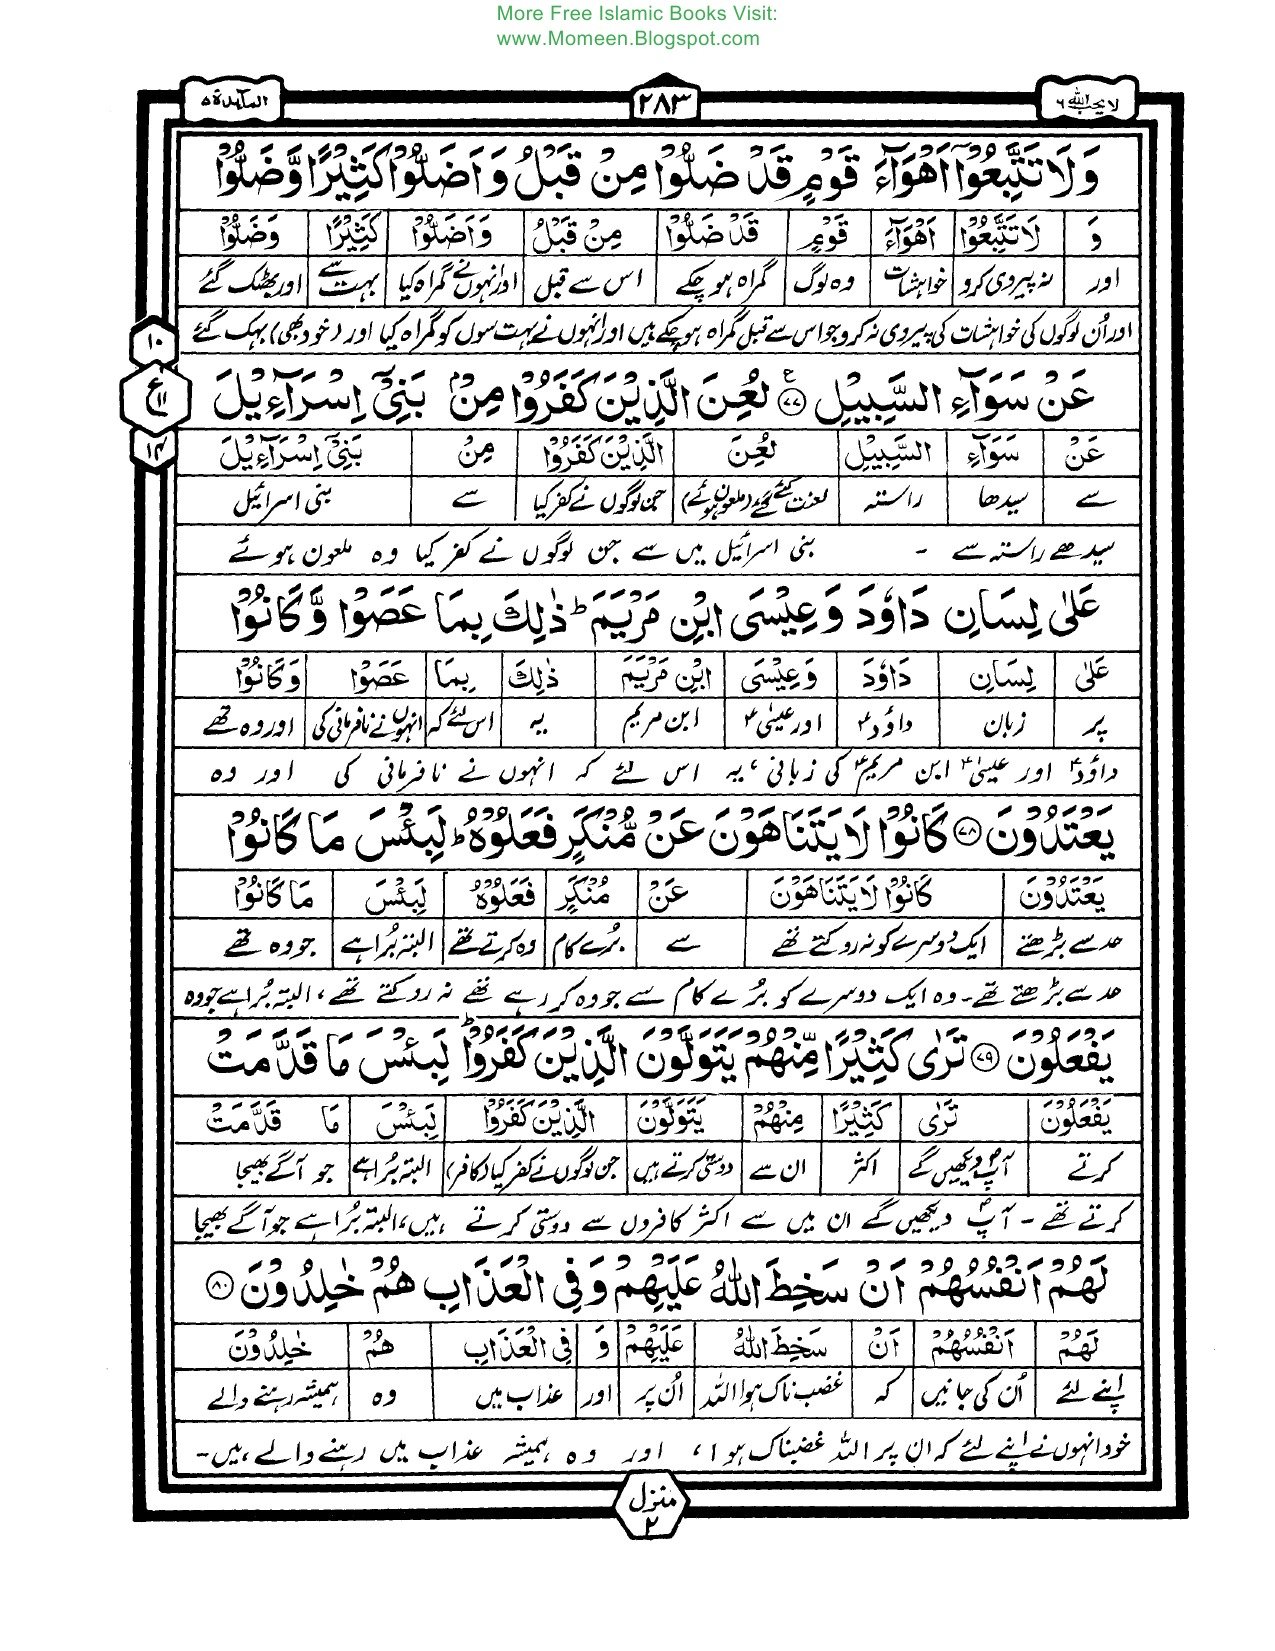 More Free Islamic Books Visit:
www.Momeen.Blogspot.com
لا يحب الله ٦
٢٨٣
المآئدة ٥
وَلَا تَتَّبِعُوْٓا اَهْوَآءَ قَوْمٍ قَدْ ضَلُّوْا مِنْ قَبْلُ وَ اَضَلُّوْا كَثِيْرًا وَّضَلُّوْا
وَ لَا تَتَّبِعُوْٓا اَهْوَآءَ قَوْمٍ قَدْ ضَلُّوْا مِنْ قَبْلُ وَاَضَلُّوْا كَثِيْرًا وَضَلُّوْا
اور نہ پیروی کرو خواہشات وہ لوگ گمراہ ہوچکے اس سے قبل اور انہوں نے گمراہ کیا بہت سے اور بھٹک گئے
اور اُن لوگوں کی خواہشات کی پیروی نہ کرو جو اس سے قبل گمراہ ہوچکے ہیں اور انہوں نے بہت سوں کو گمراہ کیا اور (خود بھی) بہک گئے
١٠
ع
١١
١٤
عَنْ سَوَآءِ السَّبِيْلِ ۝٧٧ ع لُعِنَ الَّذِيْنَ كَفَرُوْا مِنْۢ بَنِيْٓ اِسْرَآءِيْلَ
عَنْ سَوَآءِ السَّبِيْلِ لُعِنَ الَّذِيْنَ كَفَرُوْا مِنْ بَنِيْٓ اِسْرَآءِيْلَ
سے سیدھا راستہ لعنت کئے گئے (ملعون ہوئے) جن لوگوں نے کفر کیا سے بنی اسرائیل
سیدھے راستہ سے ۔ بنی اسرائیل میں سے جن لوگوں نے کفر کیا وہ ملعون ہوئے
عَلٰى لِسَانِ دَاوٗدَ وَعِيْسَى ابْنِ مَرْيَمَ ؕ ذٰلِكَ بِمَا عَصَوْا وَّكَانُوْا
عَلٰى لِسَانِ دَاوٗدَ وَعِيْسَى ابْنِ مَرْيَمَ ذٰلِكَ بِمَا عَصَوْا وَّكَانُوْا
پر زبان داؤدؑ اور عیسیٰؑ ابن مریم یہ اس لئے کہ انہوں نے نافرمانی کی اور وہ تھے
داؤدؑ اور عیسیٰؑ ابن مریمؑ کی زبانی، یہ اس لئے کہ انہوں نے نافرمانی کی اور وہ
يَعْتَدُوْنَ ۝٧٨ كَانُوْا لَا يَتَنَاهَوْنَ عَنْ مُّنْكَرٍ فَعَلُوْهُ ؕ لَبِئْسَ مَا كَانُوْا
يَعْتَدُوْنَ كَانُوْا لَا يَتَنَاهَوْنَ عَنْ مُنْكَرٍ فَعَلُوْهُ لَبِئْسَ مَا كَانُوْا
حد سے بڑھتے ایک دوسرے کو نہ روکتے تھے سے بُرے کام وہ کرتے تھے البتہ بُرا ہے جو وہ تھے
حد سے بڑھتے تھے۔ وہ ایک دوسرے کو بُرے کام سے جو وہ کر رہے تھے نہ روکتے تھے، البتہ بُرا ہے جو وہ
يَفْعَلُوْنَ ۝٧٩ تَرٰى كَثِيْرًا مِّنْهُمْ يَتَوَلَّوْنَ الَّذِيْنَ كَفَرُوْا ؕ لَبِئْسَ مَا قَدَّمَتْ
يَفْعَلُوْنَ تَرٰى كَثِيْرًا مِنْهُمْ يَتَوَلَّوْنَ الَّذِيْنَ كَفَرُوْا لَبِئْسَ مَا قَدَّمَتْ
کرتے آپؐ دیکھیں گے اکثر ان سے دوستی کرتے ہیں جن لوگوں نے کفر کیا (کافر) البتہ بُرا ہے جو آگے بھیجا
کرتے تھے ۔ آپؐ دیکھیں گے ان میں سے اکثر کافروں سے دوستی کرتے ہیں، البتہ بُرا ہے جو آگے بھیجا
لَهُمْ اَنْفُسُهُمْ اَنْ سَخِطَ اللّٰهُ عَلَيْهِمْ وَفِي الْعَذَابِ هُمْ خٰلِدُوْنَ ۝٨٠
لَهُمْ اَنْفُسُهُمْ اَنْ سَخِطَ اللّٰهُ عَلَيْهِمْ وَ فِي الْعَذَابِ هُمْ خٰلِدُوْنَ
اپنے لئے اُن کی جانیں کہ غضب ناک ہوا اللہ اُن پر اور عذاب میں وہ ہمیشہ رہنے والے
خود انہوں نے اپنے لئے کہ ان پر اللہ غضبناک ہوا، اور وہ ہمیشہ عذاب میں رہنے والے ہیں۔
منزل ٢